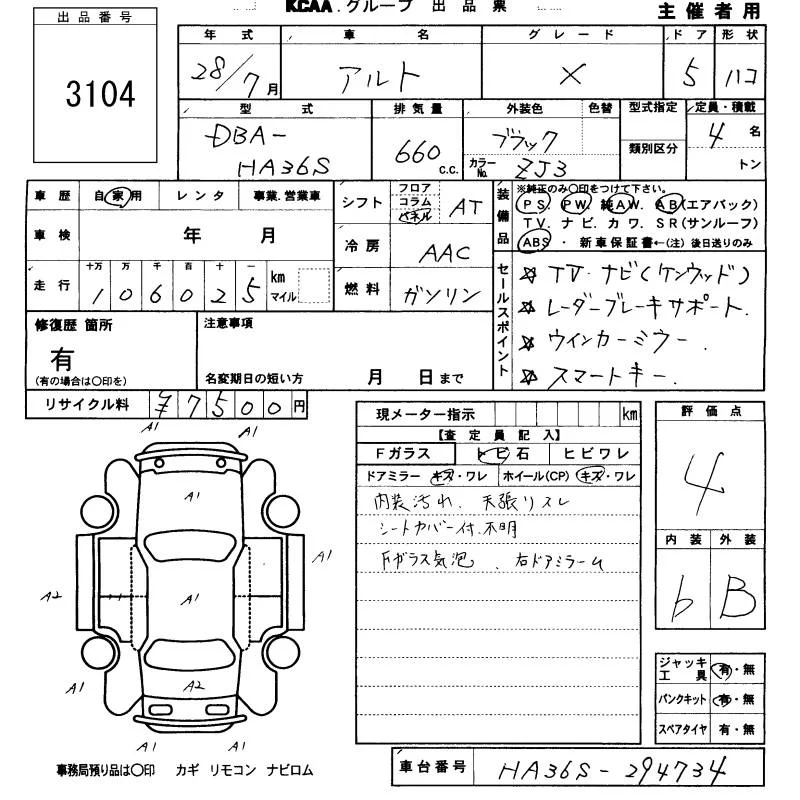 KCAA.グループ 出品票
主催者用
出品番号
3104
年式 車名 グレード ドア 形状
28/7月 アルト X 5 ハコ
型式 排気量 外装色 色替 型式指定 定員・積載
DBA-
HA36S
660 c.c.
ブラック
カラーNo. ZJ3
類別区分
4 名
トン
車歴 自家用 レンタ 事業.営業車
車検 年 月
走行 十万 万 千 百 十 一
106025 km
マイル
シフト フロア コラム パネル AT
冷房 AAC
燃料 ガソリン
装備品
※純正のみ○印をつけて下さい。
PS PW 純AW. AB(エアバック)
TV. ナビ. カワ. SR(サンルーフ)
ABS ・ 新車保証書←(注) 後日送りのみ
セールスポイント
☆ TV・ナビ(ケンウッド)
☆ レーダーブレーキサポート.
☆ ウインカーミラー.
☆ スマートキー.
修復歴 箇所
有
(有の場合は○印を)
注意事項
名変期日の短い方 月 日まで
リサイクル料 ¥7500円
現メーター指示 km
【査定員記入】
Fガラス トビ石 ヒビワレ
ドアミラー キズ・ワレ ホイール(CP) キズ・ワレ
内装汚れ. 天張リスレ
シートカバー付.不明
Fガラス気泡 、右ドアミラーム
評価点
4
内装 外装
b B
ジャッキ工具 有・無
パンクキット 有・無
スペアタイヤ 有・無
A1 A1
A1
A1
A2 A1
A1 A2 A1
A1 A1
事務局預り品は○印 カギ リモコン ナビロム
車台番号 HA36S-294734